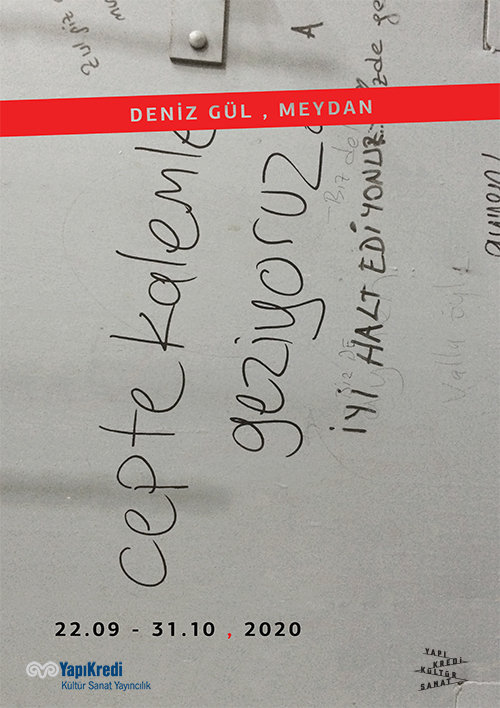 DENİZ GÜL , MEYDAN
cepte kalemle
geziyoruz
İYİ HALT EDİYONUZ
Biz de
Valla öyle
A
22.09 - 31.10 , 2020
YapıKredi
Kültür Sanat Yayıncılık
YAPI
KREDİ
KÜLTÜR
SANAT